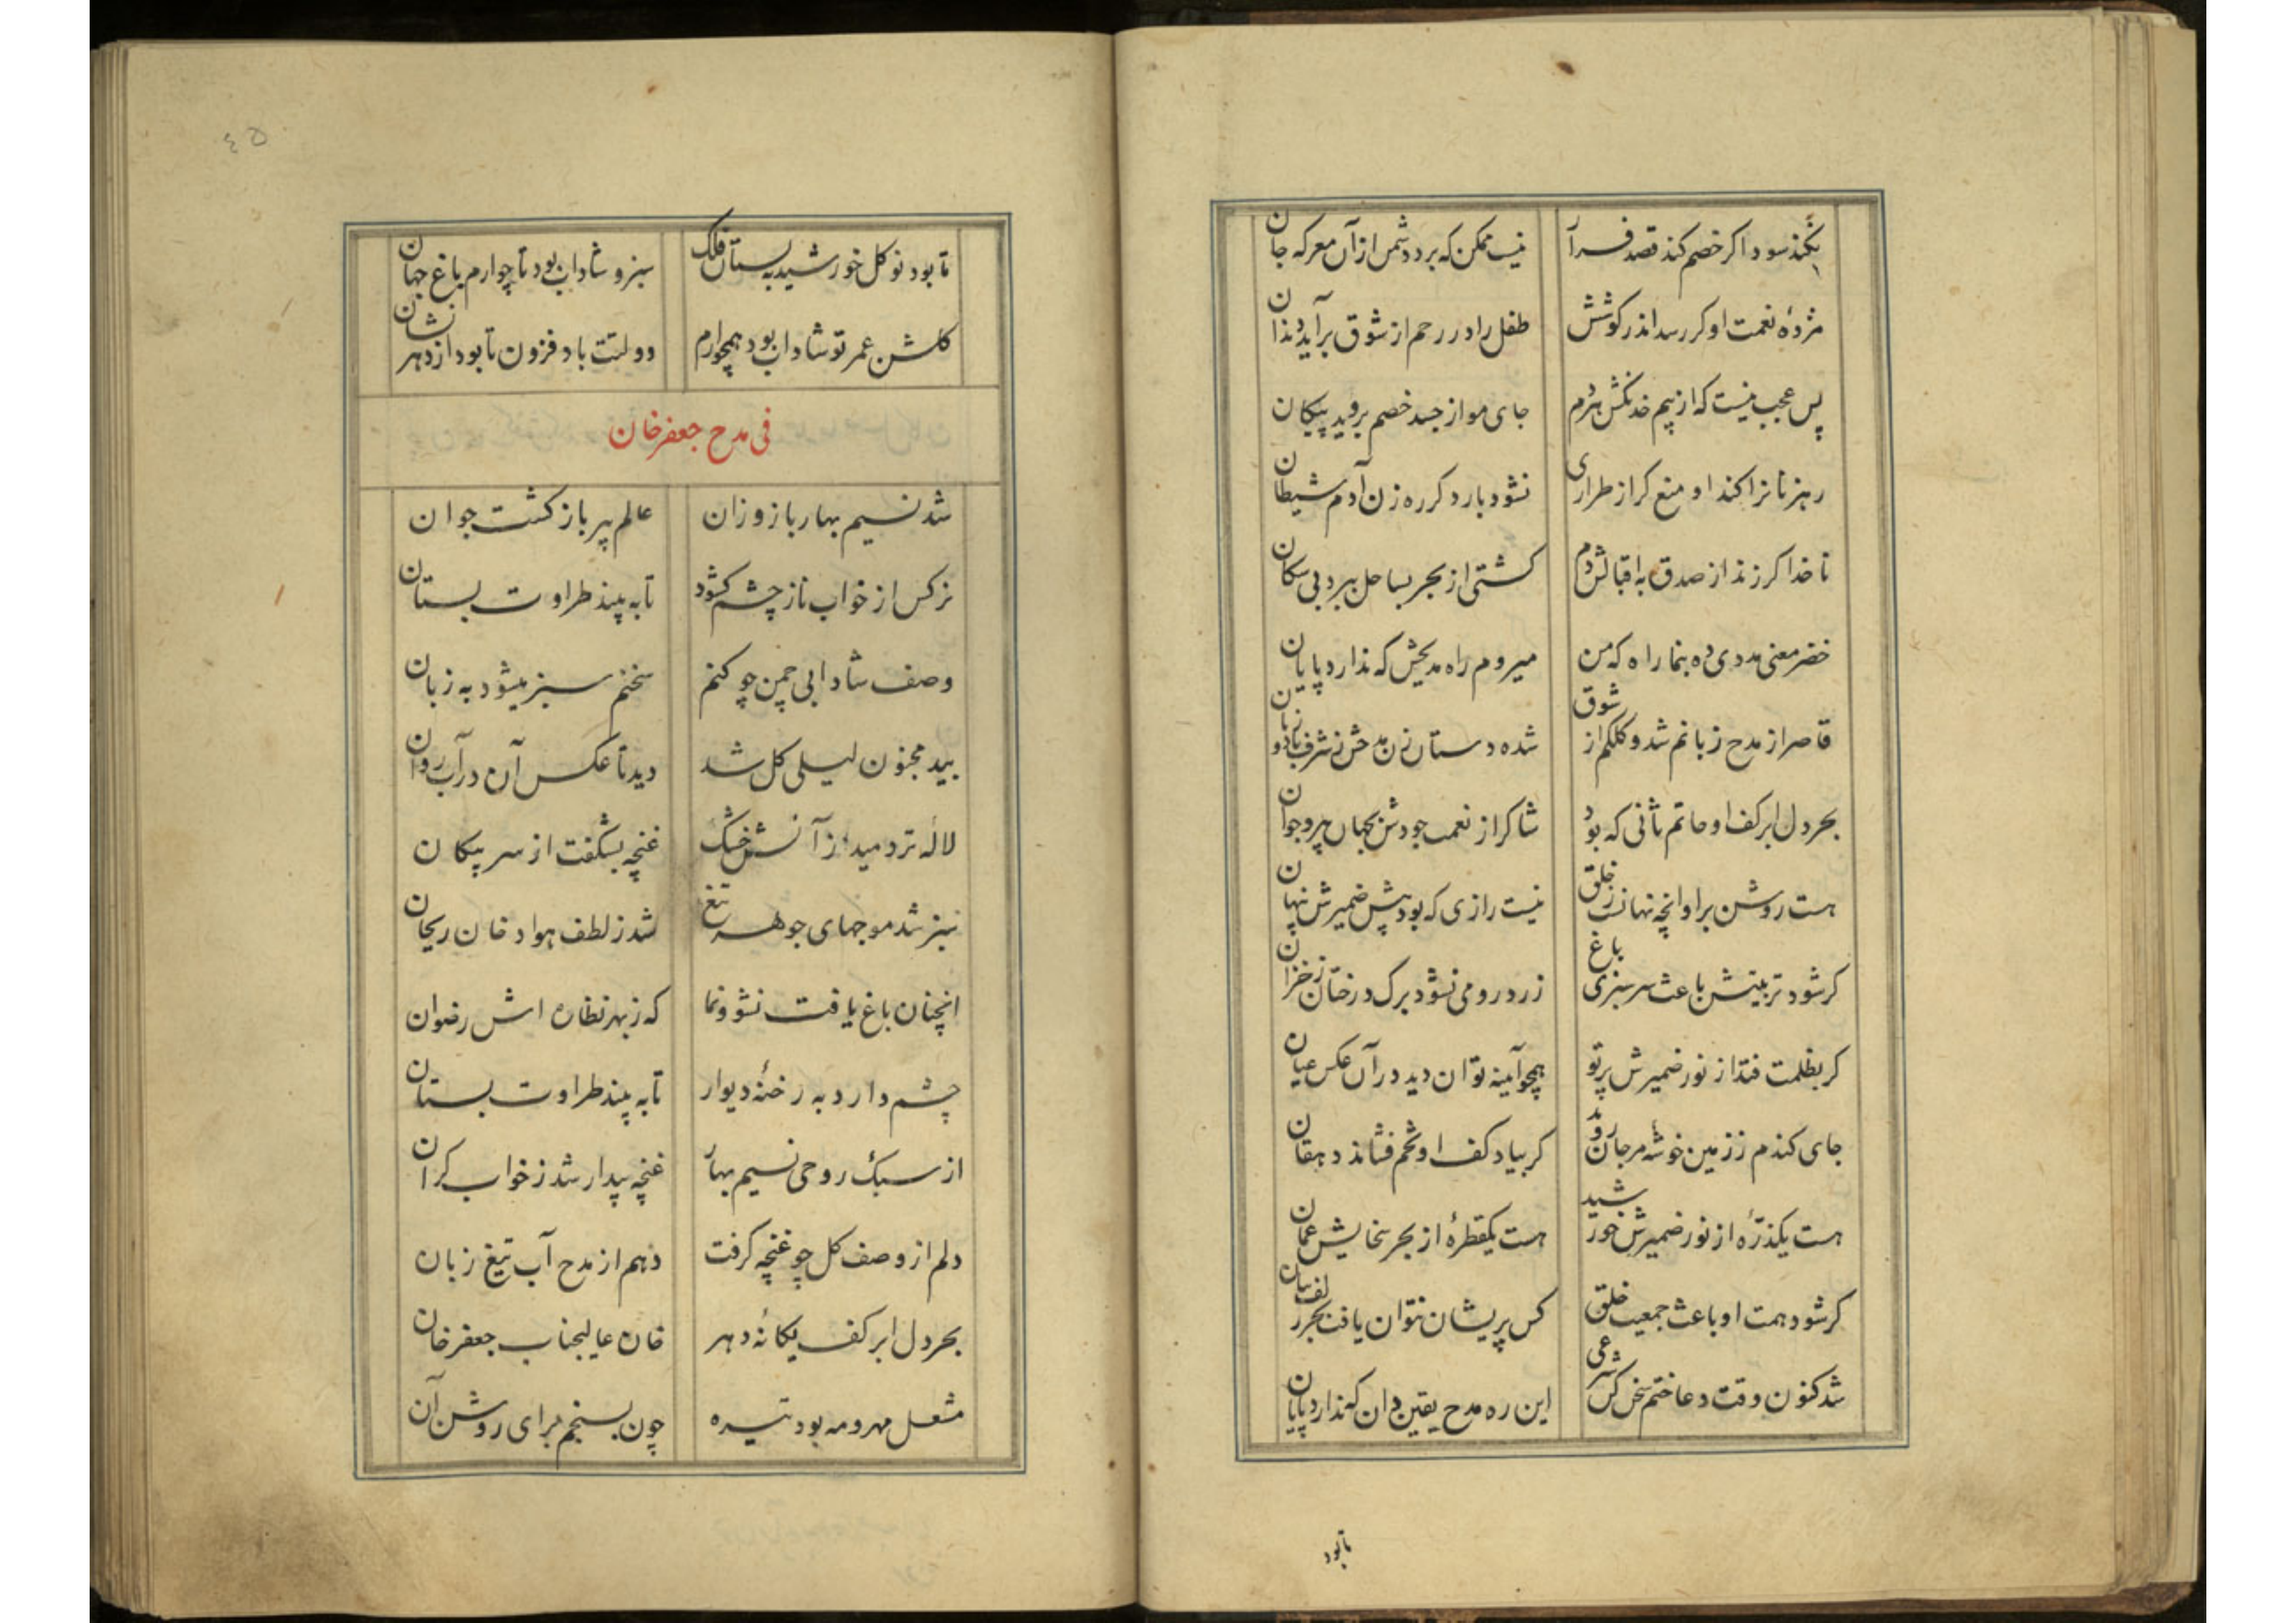 نکند سود اگر خصم کند قصد فرار نیست ممکن که برد دشمن از آن معرکه جان
مژدهٔ نعمت او کر رسد اندر کوشش طفل را در رحم از شوق برآید دندان
پس عجب نیست که از بیم خدنکش هردم جای مو از جسد خصم بروید پیکان
رهزنانرا کند او منع کر از طراری نشود بار دکر ره زن آدم شیطان
ناخدا کر زند از صدق به اقبالش دم کشتی از بحر بساحل ببرد بی سکان
خضر معنی مددی ده بنما راه که من میروم راه مدیحش که ندارد پایان
قاصر از مدح زبانم شد و کلکم از شوق شده دستان زن مدحش ز شرف با دو زبان
بحر دل ابر کف او حاتم ثانی که بود شاکر از نعمت جودش بجهان پیر و جوان
هست روشن بر او انچه نهانست ز خلق نیست رازی که بود پیش ضمیرش پنهان
کر شود تربیتش باعث سرسبزی باغ زرد رو می نشود برک درختان ز خزان
کر بظلمت فتد از نور ضمیرش پرتو همچو آینه توان دید در آن عکس عیان
جای کندم ز زمین خوشهٔ مرجان روید کر بیاد کف او تخم فشاند دهقان
هست یکذرّهٔ از نور ضمیرش خورشید هست یکقطرهٔ از بحر سخایش عمان
کر شود همت او باعث جمعیت خلق کس پریشان نتوان یافت بجز زلف بتان
شد کنون وقت دعا ختم سخن کن شرعی این ره مدح یقین دان که ندارد پایان
تابود
٤٥
تا بود نو کل خورشید به بستان فلک سبز و شاداب بود تا چو ارم باغ جهان
کلشن عمر تو شاداب بود همچو ارم دولتت باد فزون تا بود از دهر نشان
فی مدح جعفر خان
شد نسیم بهار باز وزان عالم پیر باز کشت جوان
نرکس از خواب ناز چشم کشود تا به بیند طراوت بستان
وصف شادابی چمن چو کنم سخنم سبز میشود به زبان
بید مجنون لیلی کل شد دید تا عکس آن در آب روان
لاله تر دمید از آتش خشک غنچه بشکفت از سر پیکان
سبز شد موجهای جوهر تیغ شد ز لطف هوا دخان ریحان
انچنان باغ یافت نشو و نما که ز بهر نظاره اش رضوان
چشم دارد به رخنهٔ دیوار تا به بیند طراوت بستان
از سبک روحی نسیم بهار غنچه بیدار شد ز خواب کران
دلم از وصف کل چو غنچه کرفت دهم از مدح آب تیغ زبان
بحر دل ابر کف یکانهٔ دهر خان عالیجناب جعفر خان
مشعل مهر و مه بود تیره چون بسنجم برای روشن آن